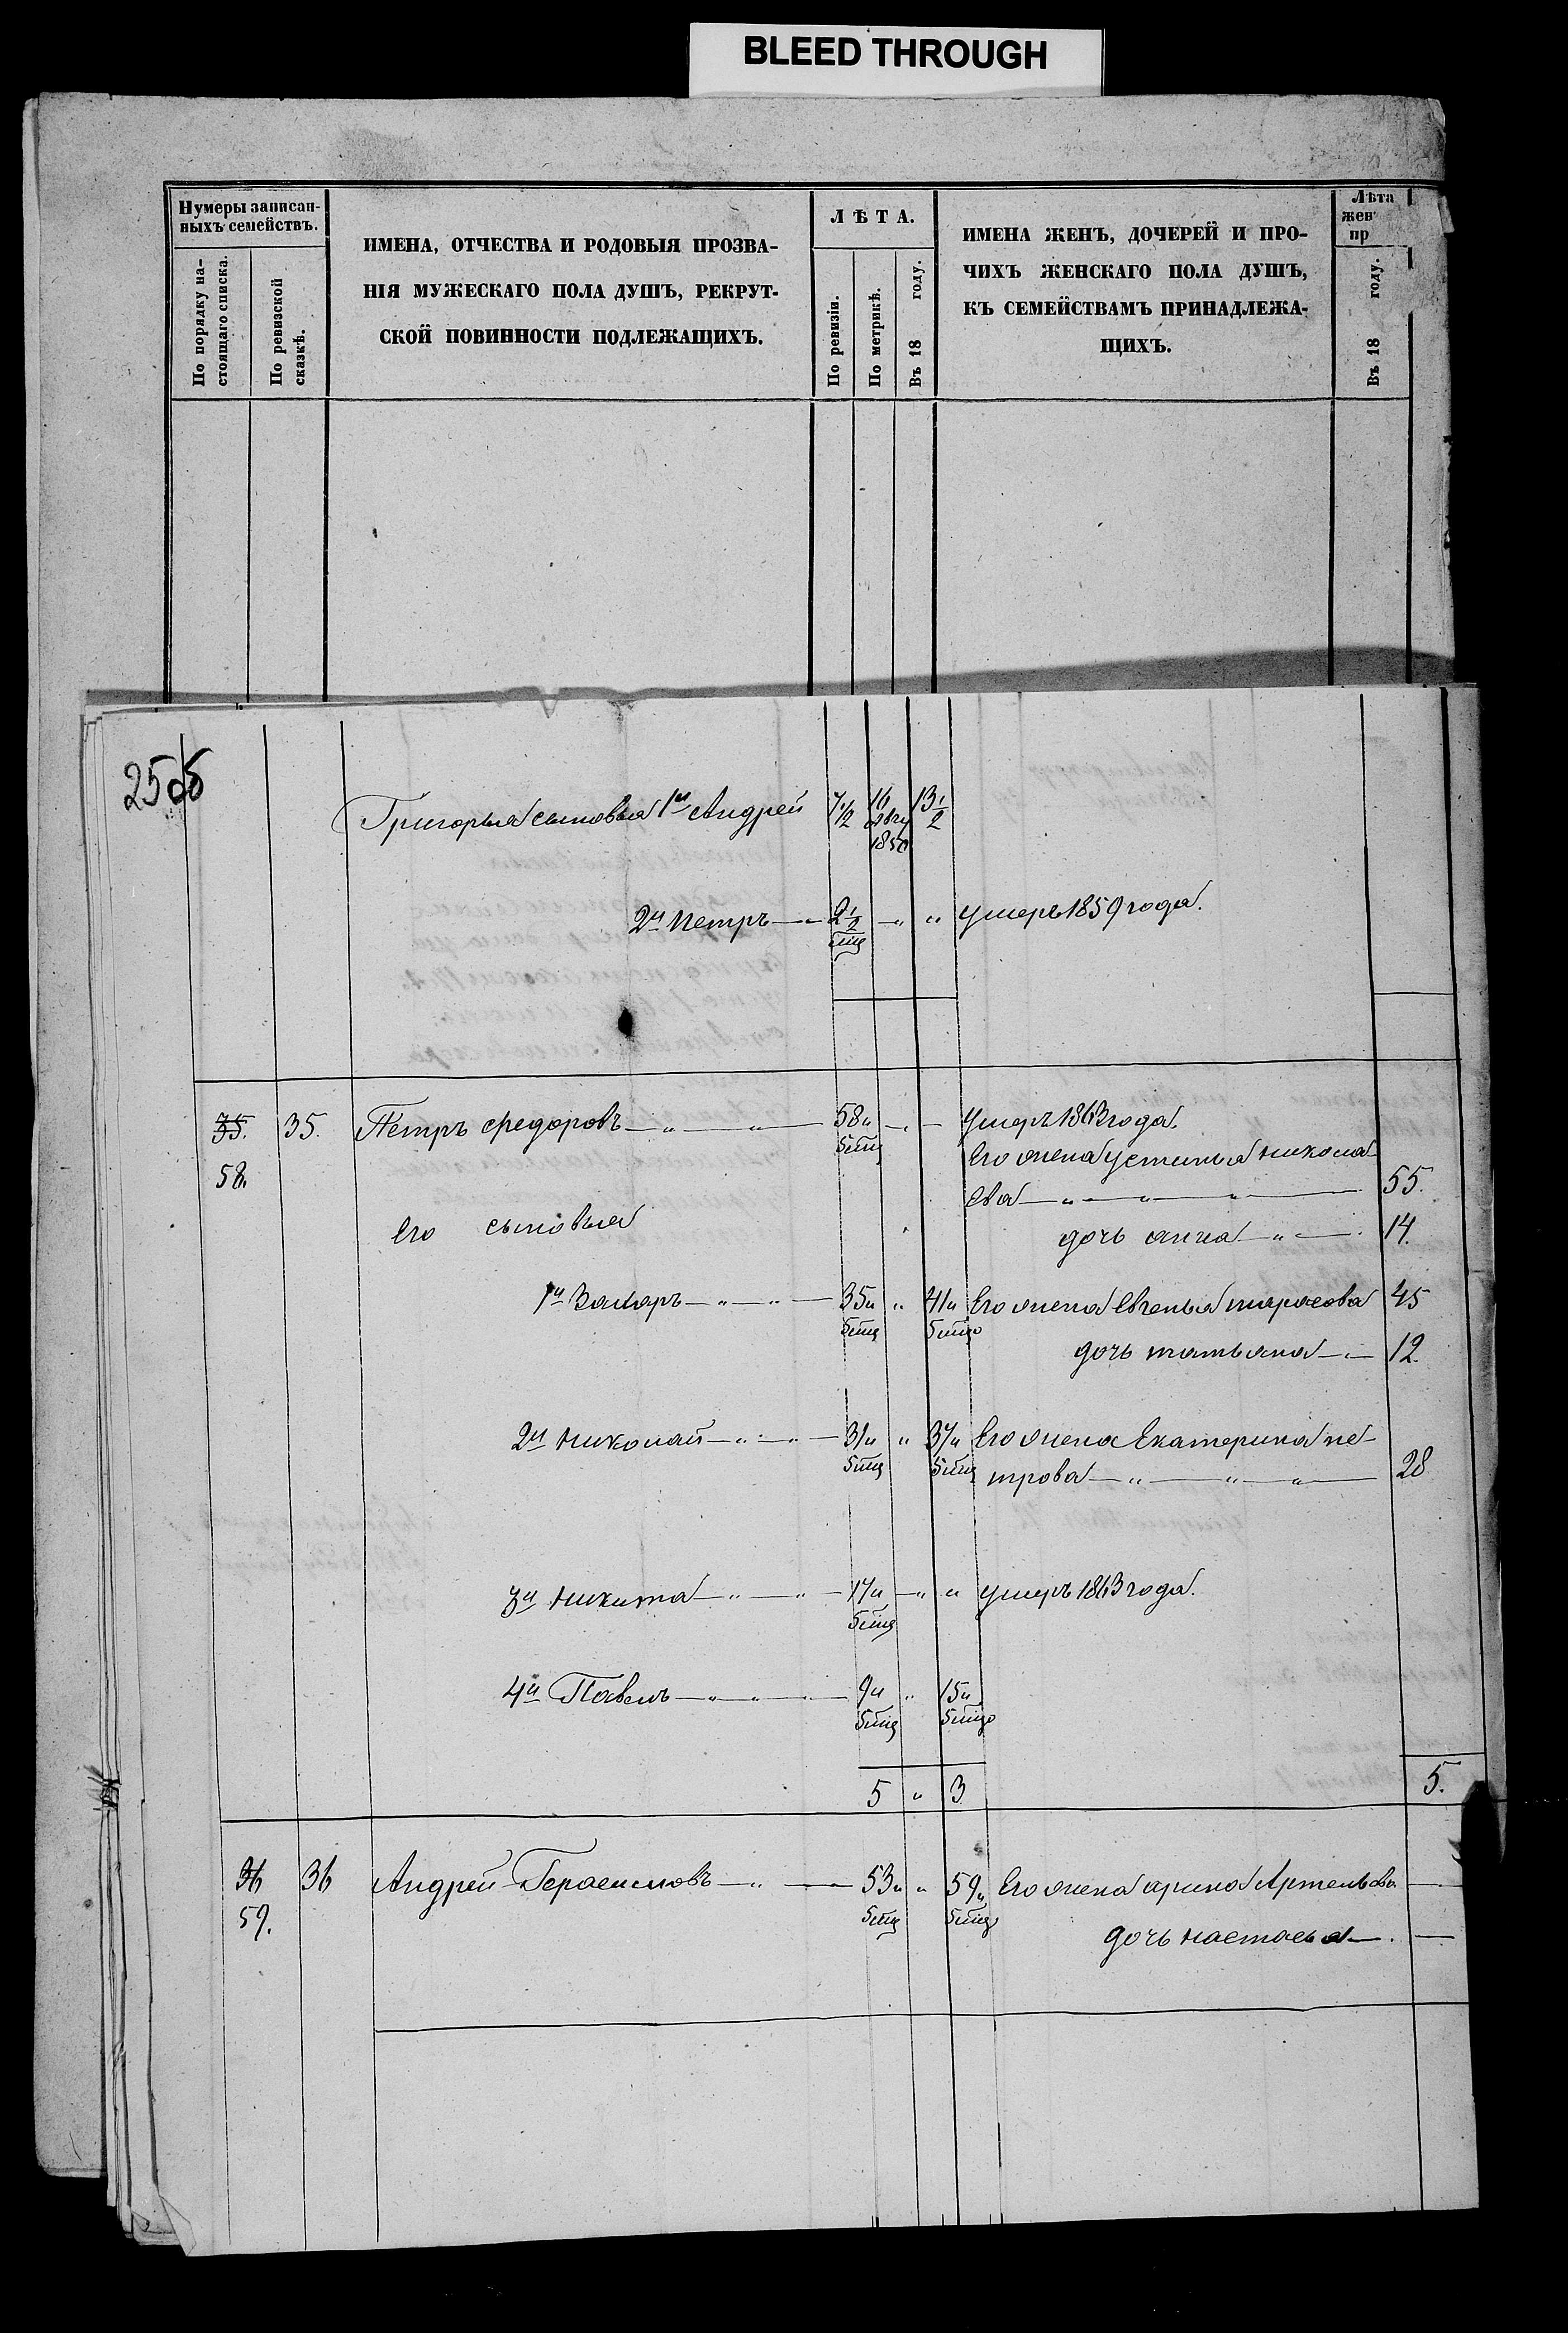 BLEED THROUGH
Нумеры записан-
ныхъ семействъ.
По порядку на-
стоящаго списка.
По ревизской
сказкѣ.
ИМЕНА, ОТЧЕСТВА И РОДОВЫЯ ПРОЗВА-
НІЯ МУЖЕСКАГО ПОЛА ДУШЪ, РЕКРУТ-
СКОЙ ПОВИННОСТИ ПОДЛЕЖАЩИХЪ.
ЛѢТА.
По ревизіи.
По метрикѣ.
Въ 18 году.
ИМЕНА ЖЕНЪ, ДОЧЕРЕЙ И ПРО-
ЧИХЪ ЖЕНСКАГО ПОЛА ДУШЪ,
КЪ СЕМЕЙСТВАМЪ ПРИНАДЛЕЖА-
ЩИХЪ.
Лѣта
жен
пр
Въ 18 году.
25об
Григорья сыновья 1й Андрей 7 1/2 16 Авгу 1850 13 1/2
2й Петръ 2 1/2 " умеръ 1859 года.
35. 35. Петръ Федоровъ 58 умеръ 1863 года.
58. Его жена устинья никола
ева 55.
Его сыновья дочь анна 14.
1й Захаръ 35 " 41 Его жена Евгенья тарасова 45
дочь татьяна 12.
2й николай 31 " 37 Его жена Екатерина пе-
трова 28
3й никита 17 " умеръ 1863 года.
4й Павелъ 9 " 15
5 " 3 5.
36 36 Андрей Герасимовъ 53 " 59 Его жена арина
59. дочь настасья